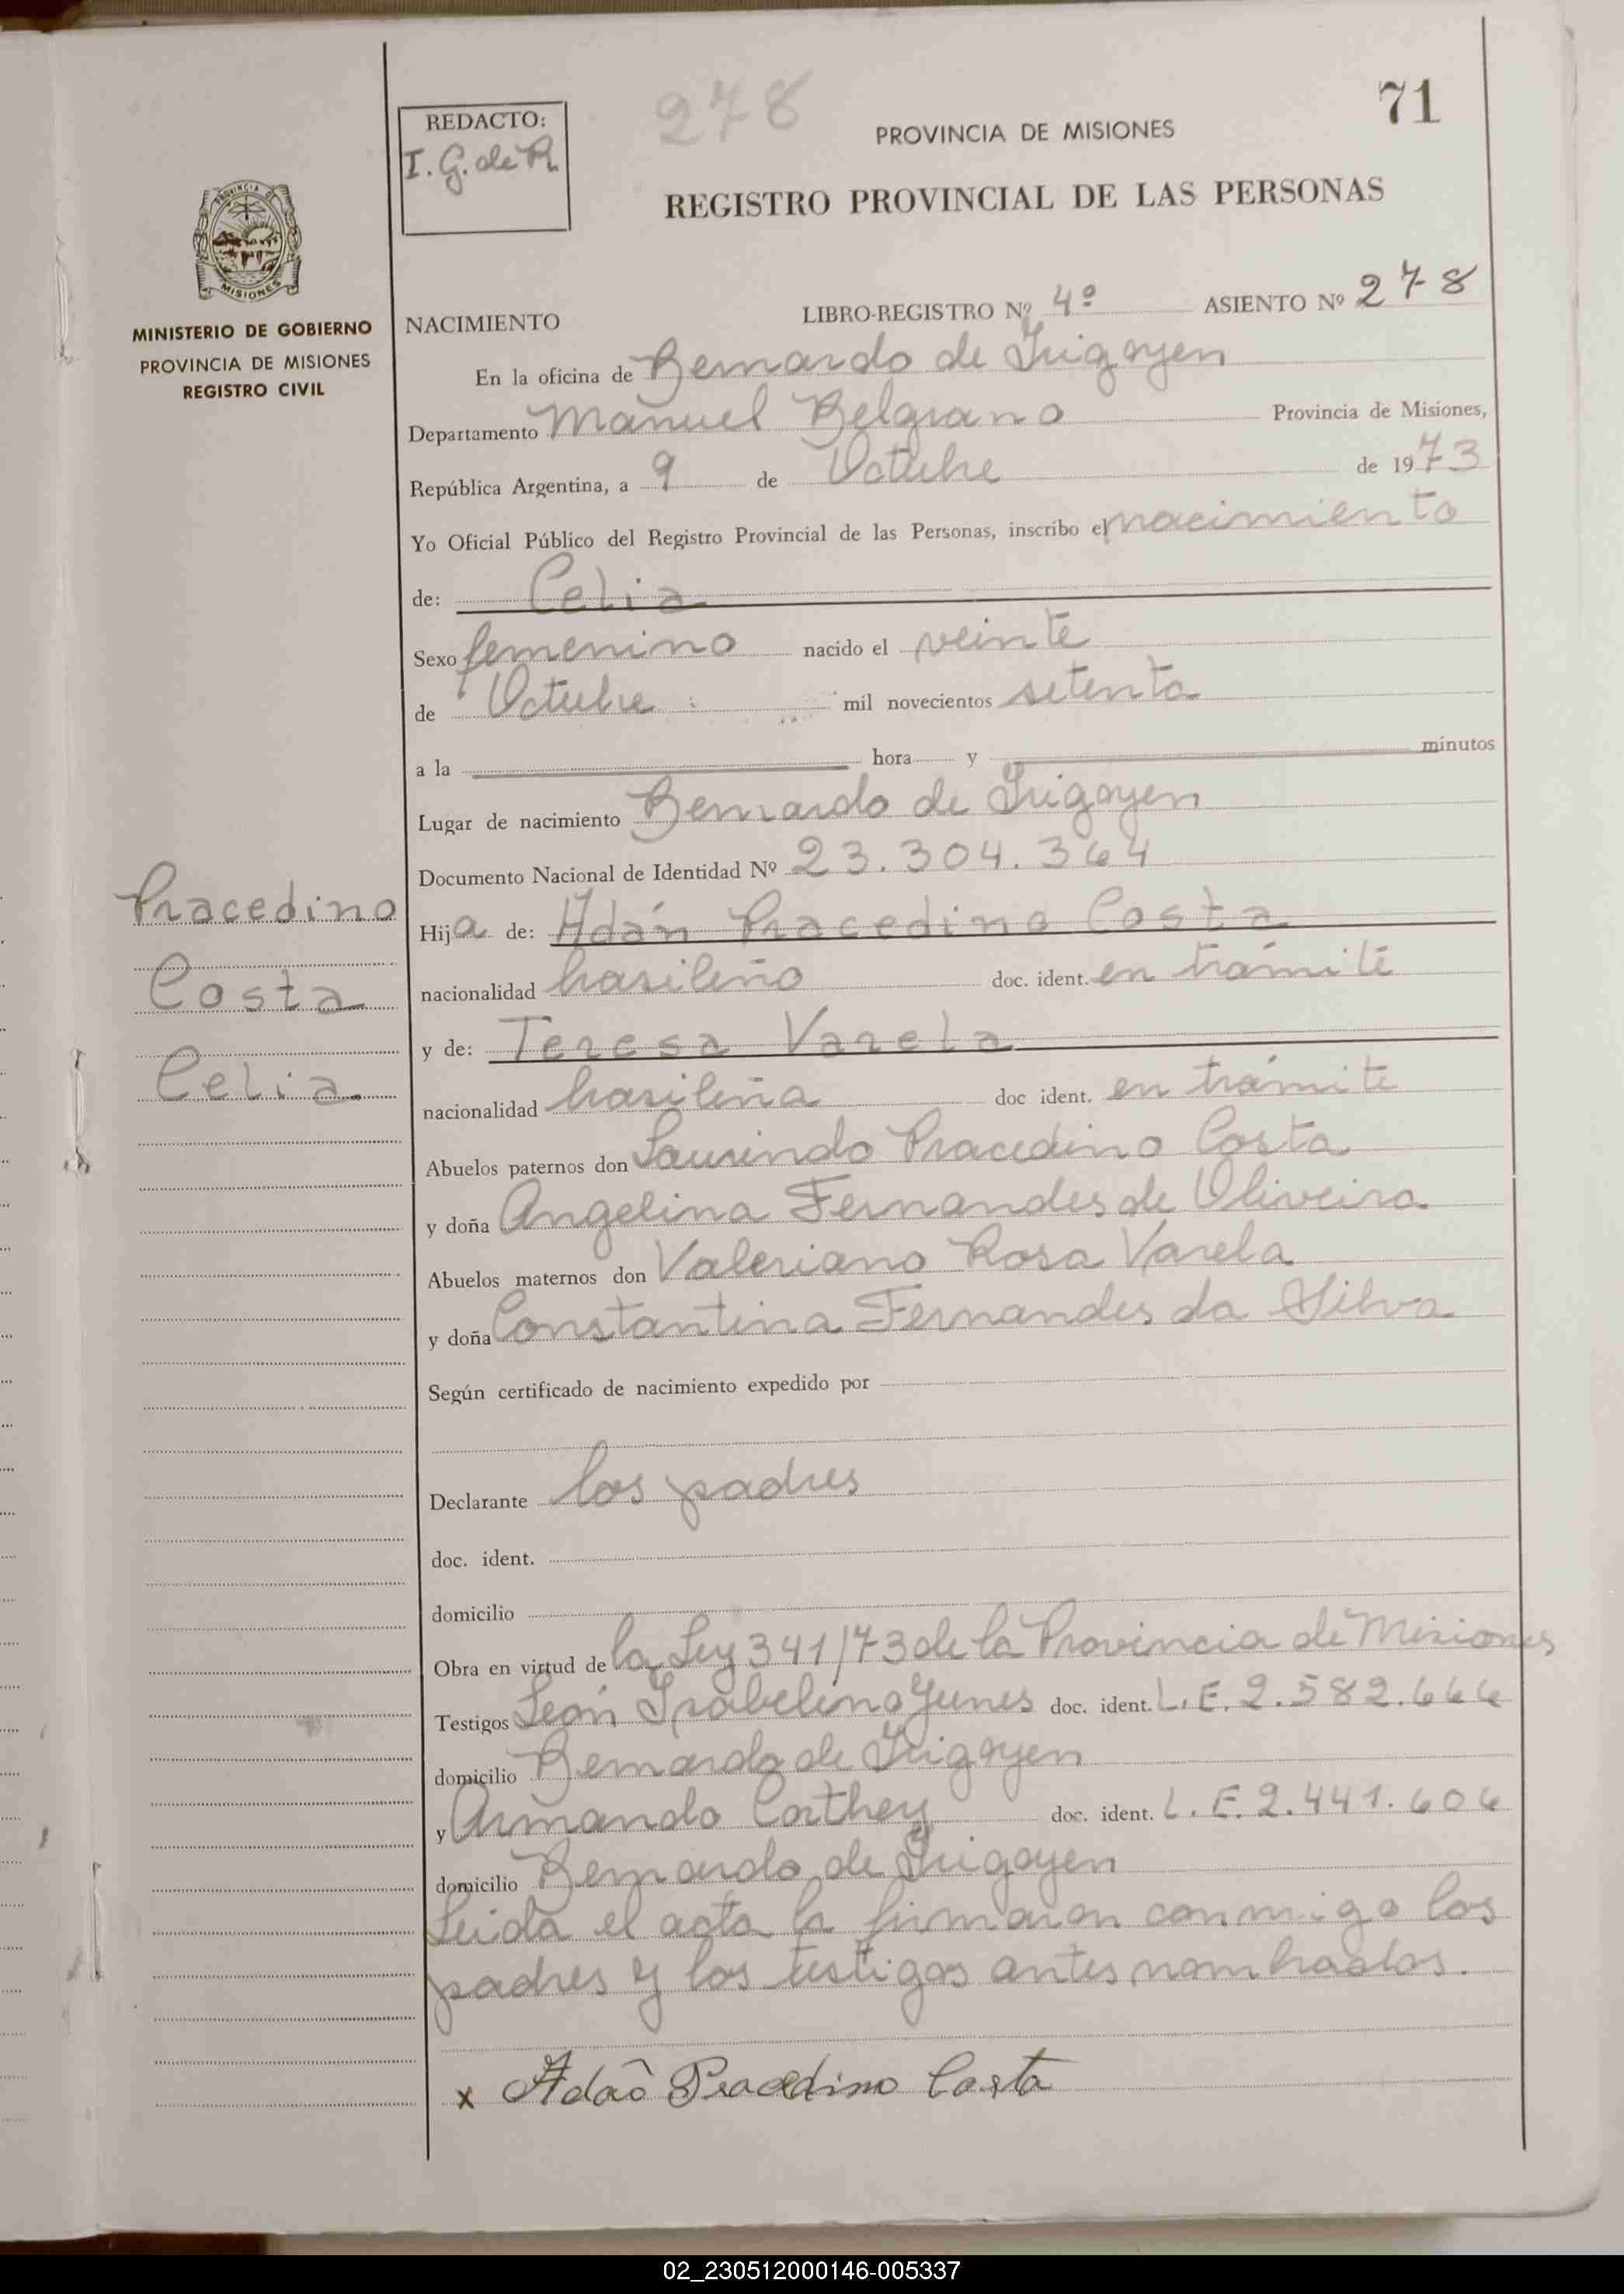 278
71
REDACTO:
I. G. de R.
PROVINCIA DE MISIONES
REGISTRO PROVINCIAL DE LAS PERSONAS
PROVINCIA DE
MISIONES
MINISTERIO DE GOBIERNO
PROVINCIA DE MISIONES
REGISTRO CIVIL
NACIMIENTO LIBRO-REGISTRO Nº 4º ASIENTO Nº 278
En la oficina de Bernardo de Irigoyen
Departamento Manuel Belgrano Provincia de Misiones,
República Argentina, a 9 de Octubre de 1973
Yo Oficial Público del Registro Provincial de las Personas, inscribo el nacimiento
de: Celia
Sexo femenino nacido el veinte
de Octubre mil novecientos setenta
a la hora y minutos
Lugar de nacimiento Bernardo de Irigoyen
Documento Nacional de Identidad Nº 23.304.364
Pracedino
Costa
Celia
Hija de: Adán Pracedino Costa
nacionalidad brasileño doc. ident. en trámite
y de: Teresa Varela
nacionalidad brasileña doc ident. en trámite
Abuelos paternos don Laurindo Pracedino Costa
y doña Angelina Fernandes de Oliveira
Abuelos maternos don Valeriano Rosa Varela
y doña Constantina Fernandes da Silva
Según certificado de nacimiento expedido por
Declarante los padres
doc. ident.
domicilio
Obra en virtud de la Ley 341/73 de la Provincia de Misiones
Testigos León Isabelino Yunes doc. ident. L.E. 2.582.666
domicilio Bernardo de Irigoyen
y Armando Corthey doc. ident. L.E. 2.441.606
domicilio Bernardo de Irigoyen
Leida el acta la firmaron conmigo los
padres y los testigos antes nombrados.
x Adaõ Pracedino Costa
02_230512000146-005337